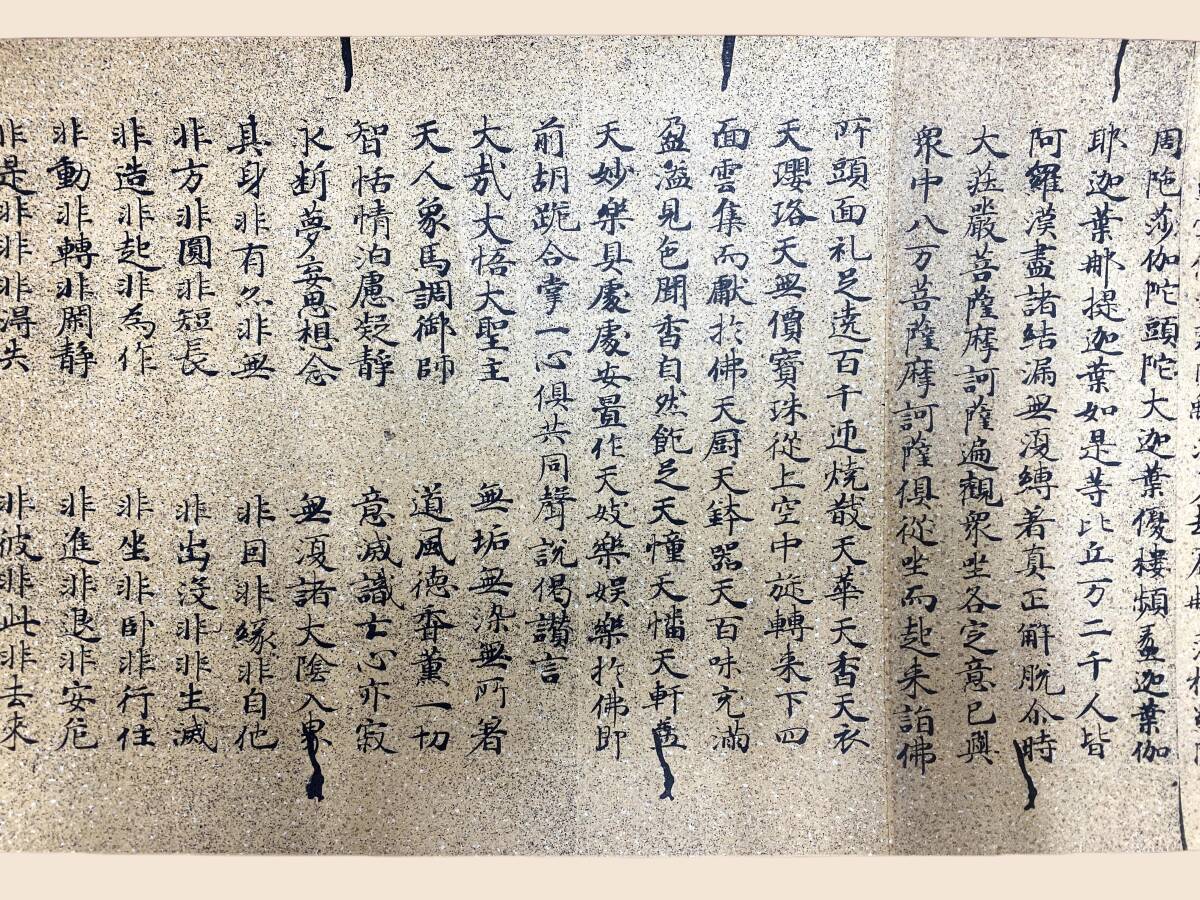 周陁莎伽陀頭陀大迦葉優樓頻蠡迦葉伽
耶迦葉那提迦葉如是等比丘万二千人皆
阿羅漢盡諸結漏無復縛著真正解脫尒時
大莊嚴菩薩摩訶薩遍觀衆坐各定意已與
衆中八万菩薩摩訶薩俱從坐而起来詣佛
所頭面礼足遶百千迊燒散天華天香天衣
天瓔珞天無價寶珠從上空中旋轉来下四
面雲集而獻於佛天厨天鉢器天百味充滿
盈溢見色聞香自然飽足天幢天幡天軒蓋
天妙樂具處處安置作天妓樂娛樂於佛即
前胡跪合掌一心俱共同聲說偈讚言
大哉大悟大聖主 無垢無染無所著
天人象馬調御師 道風德香薰一切
智恬情泊慮凝靜 意滅識亡心亦寂
永斷夢妄思想念 無復諸大陰入界
其身非有尒非無 非因非緣非自他
非方非圓非短長 非出沒非非生滅
非造非起非為作 非坐非卧非行住
非動非轉非閑静 非進非退非安危
非是非非非得失 非彼非此非去来